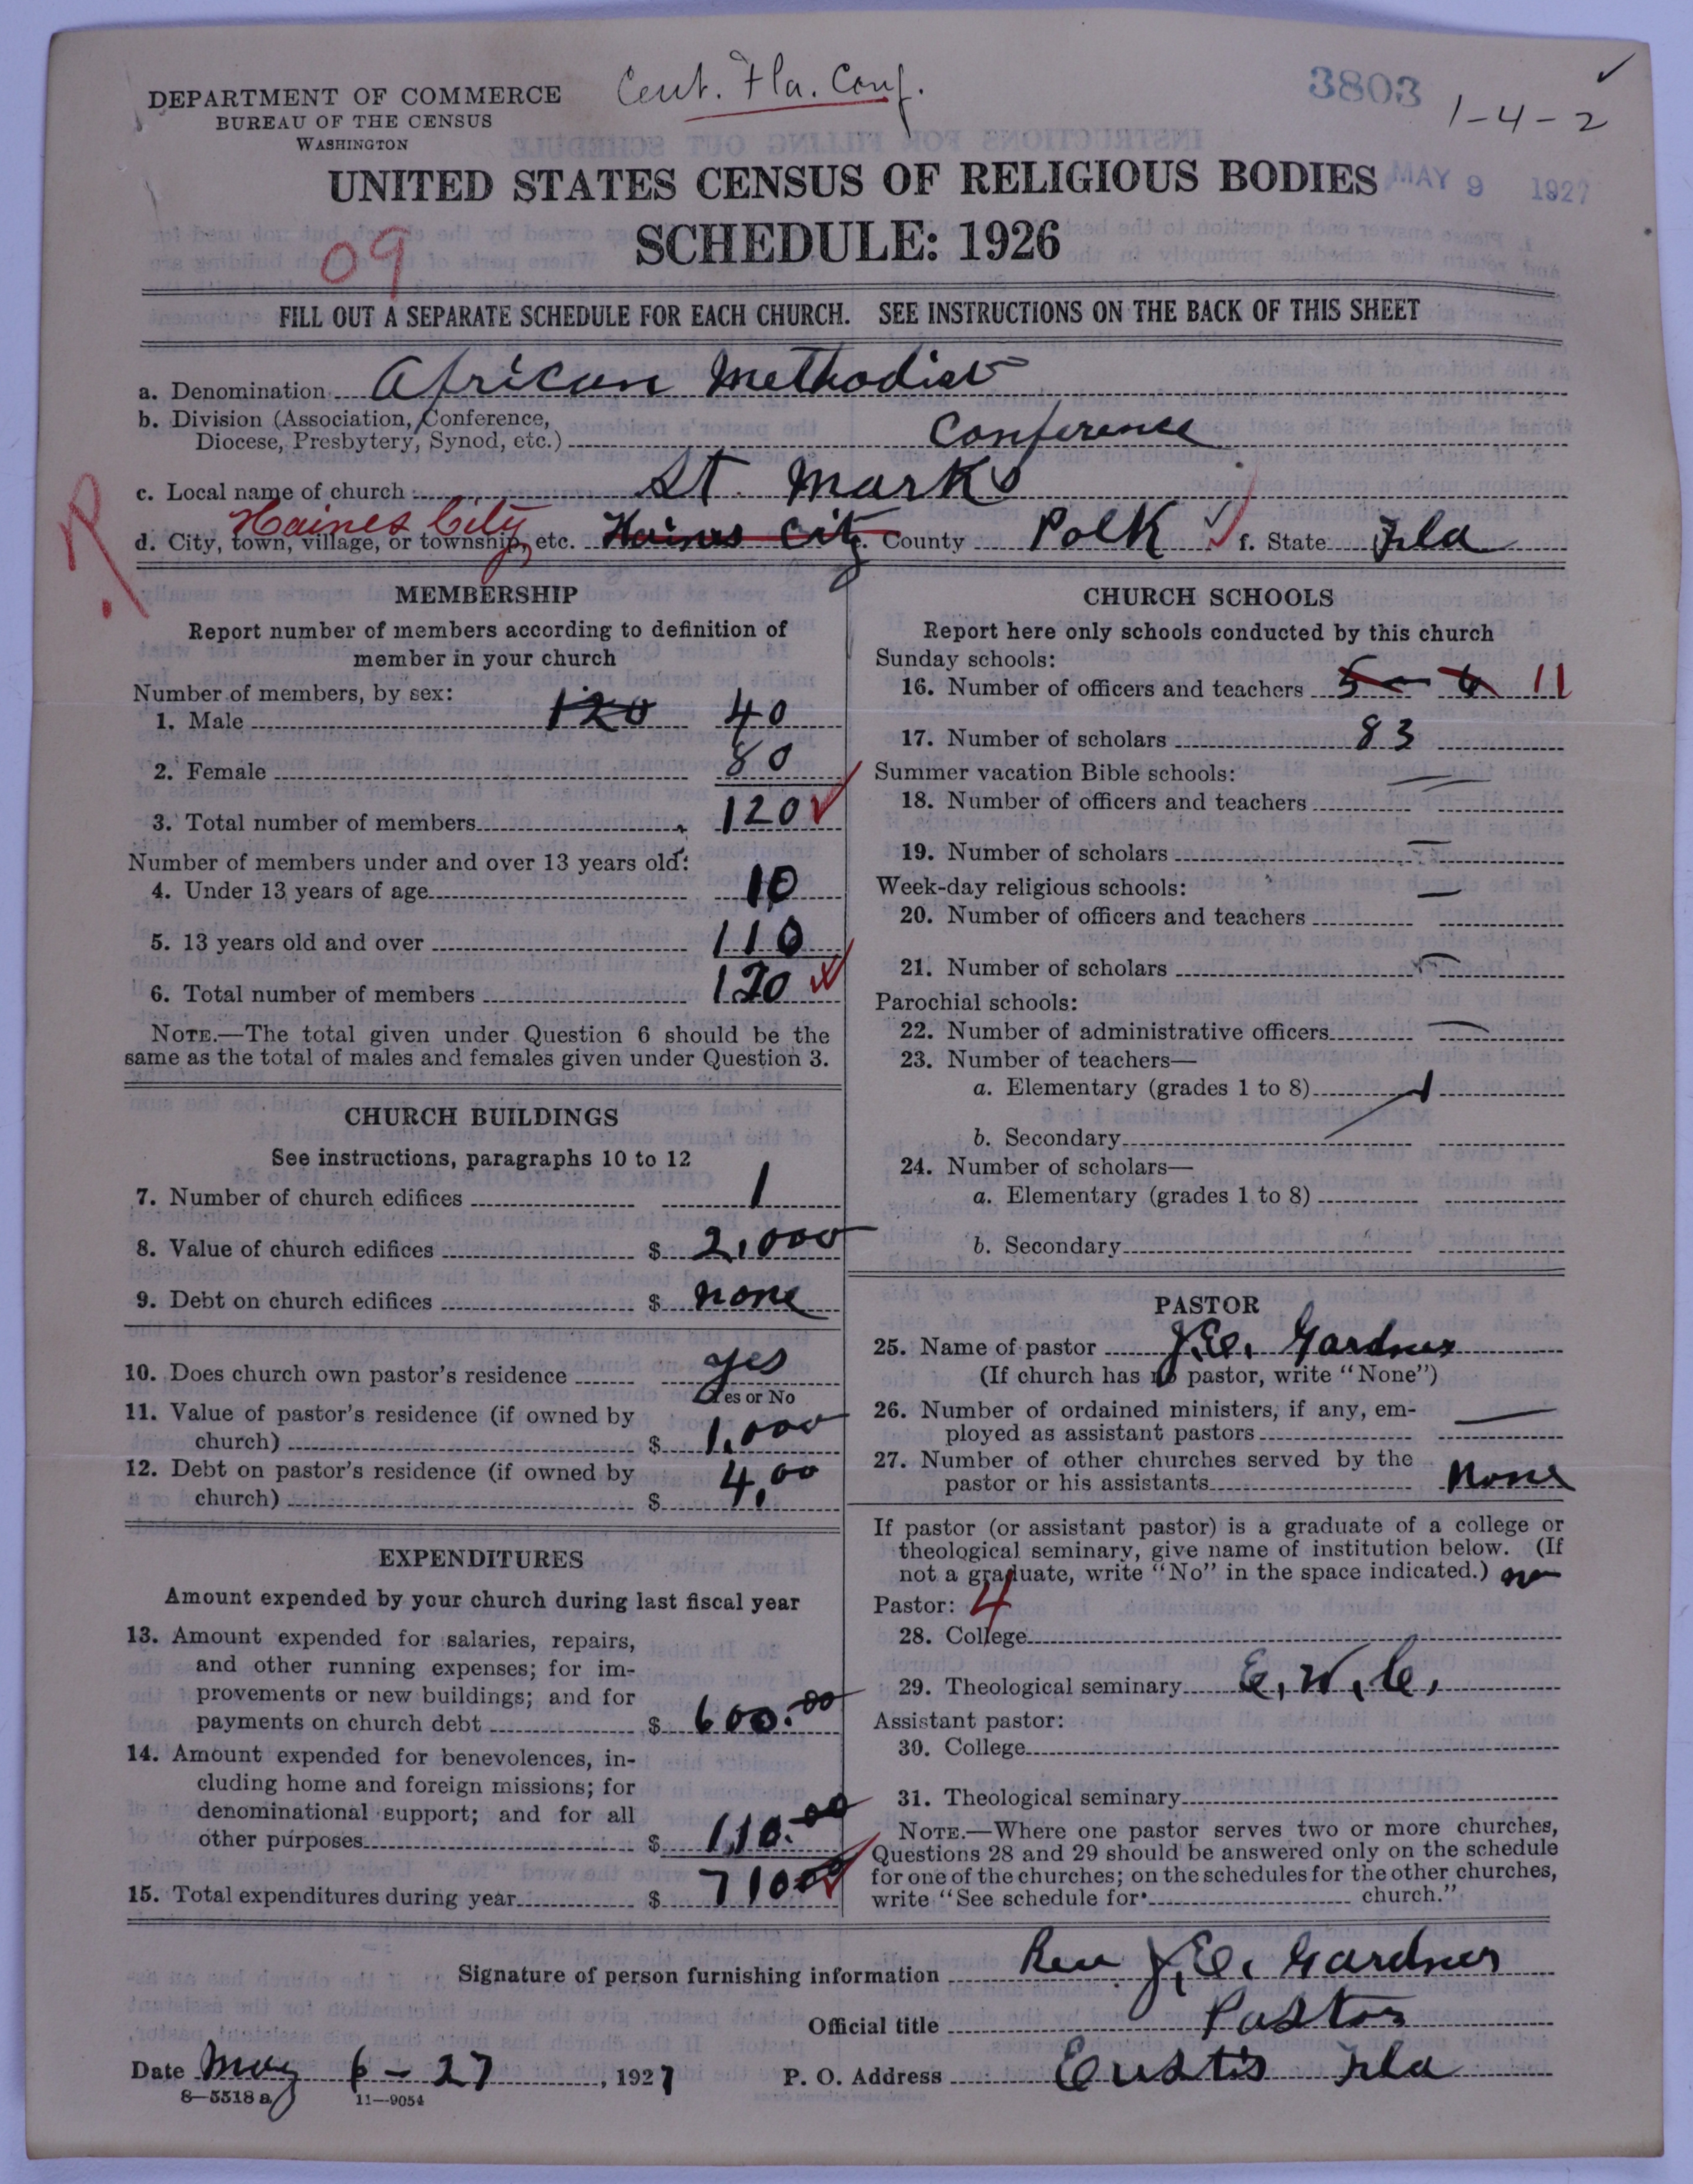 DEPARTMENT OF COMMERCE
BUREAU OF THE CENSUS
WASHINGTON
Cent. Fla. Conf.
3803
1-4-2
MAY 9 1927
UNITED STATES CENSUS OF RELIGIOUS BODIES
SCHEDULE: 1926
09
FILL OUT A SEPARATE SCHEDULE FOR EACH CHURCH. SEE INSTRUCTIONS ON THE BACK OF THIS SHEET
a. Denomination African Methodist
b. Division (Association, Conference,
Diocese, Presbytery, Synod, etc.) Conference
c. Local name of church St. Marks
R.
Haines City
d. City, town, village, or township, etc. Haines City e. County Polk f. State Fla
MEMBERSHIP
Report number of members according to definition of
member in your church
Number of members, by sex:
1. Male 120 40
2. Female 80
3. Total number of members 120
Number of members under and over 13 years old:
4. Under 13 years of age 10
5. 13 years old and over 110
6. Total number of members 120
NOTE.—The total given under Question 6 should be the
same as the total of males and females given under Question 3.
CHURCH BUILDINGS
See instructions, paragraphs 10 to 12
7. Number of church edifices 1
8. Value of church edifices $ 2,000
9. Debt on church edifices $ none
10. Does church own pastor's residence yes
Yes or No
11. Value of pastor's residence (if owned by
church) $ 1,000
12. Debt on pastor's residence (if owned by
church) $ 4,00
EXPENDITURES
Amount expended by your church during last fiscal year
13. Amount expended for salaries, repairs,
and other running expenses; for im-
provements or new buildings; and for
payments on church debt $ 600.00
14. Amount expended for benevolences, in-
cluding home and foreign missions; for
denominational support; and for all
other purposes $ 110.00
15. Total expenditures during year $ 71000
CHURCH SCHOOLS
Report here only schools conducted by this church
Sunday schools:
16. Number of officers and teachers 5 - 6 11
17. Number of scholars 83
Summer vacation Bible schools:
18. Number of officers and teachers
19. Number of scholars
Week-day religious schools:
20. Number of officers and teachers
21. Number of scholars
Parochial schools:
22. Number of administrative officers
23. Number of teachers—
a. Elementary (grades 1 to 8)
b. Secondary
24. Number of scholars—
a. Elementary (grades 1 to 8)
b. Secondary
PASTOR
25. Name of pastor J.E. Gardner
(If church has no pastor, write "None")
26. Number of ordained ministers, if any, em-
ployed as assistant pastors
27. Number of other churches served by the
pastor or his assistants None
If pastor (or assistant pastor) is a graduate of a college or
theological seminary, give name of institution below. (If
not a graduate, write "No" in the space indicated.) no
Pastor: 4
28. College
29. Theological seminary E.W.C.
Assistant pastor:
30. College
31. Theological seminary
NOTE.—Where one pastor serves two or more churches,
Questions 28 and 29 should be answered only on the schedule
for one of the churches; on the schedules for the other churches,
write "See schedule for church."
Signature of person furnishing information Rev J.E. Gardner
Official title Pastor
Date May 6-27, 1927 P. O. Address Eustis Fla
8-5518 a 11-9054